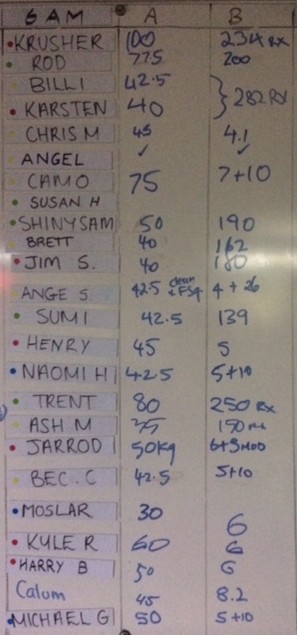 6 AM A B
KRUSHER 100 234 RX
ROD 77.5 200
BILLI 42.5
KARSTEN 40 } 282 RX
CHRIS M 45 4.1
ANGEL ✓ ✓
CAMO 75 7+10
SUSAN H
SHINYSAM 50 190
BRETT 40 162
JIM S. 40 180
ANGE S 42.5 clean + FSq 4 + 26
SUMI 42.5 139
HENRY 45 5
NAOMI H 42.5 5+10
TRENT 80 250 RX
ASH M 35 150
JARROD 50kg
BEC. C 42.5 5+10
MOSLAR 30 6
KYLE R 60 6
HARRY B 50 6
Calum 45 8.2
MICHAEL G 50 5+10